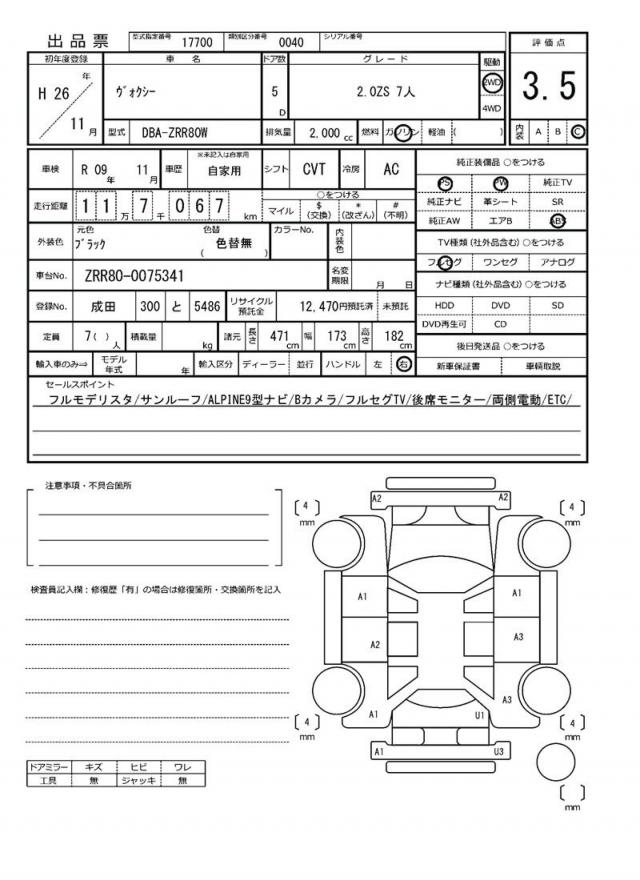 出品票 型式指定番号 17700 類別区分番号 0040 シリアル番号
初年度登録 車名 ドア数 グレード 駆動 評価点
H 26 年 ヴォクシー 5 D 2.0ZS 7人 2WD 4WD 3.5
11 月 型式 DBA-ZRR80W 排気量 2,000 cc 燃料 ガソリン 軽油 ( ) 内装 A B C
車検 R 09 年 11 月 車歴 ※未記入は自家用 自家用 シフト CVT 冷房 AC 純正装備品 ○をつける
PS PW 純正TV
走行距離 1 1 万 7 千 0 6 7 km ○をつける 純正ナビ 革シート SR
マイル $ (交換) * (改ざん) # (不明) 純正AW エアB ABS
外装色 元色 ブラック 色替 ( 色替無 ) カラーNo. 内装色 TV種類 (社外品含む) ○をつける
フルセグ ワンセグ アナログ
車台No. ZRR80-0075341 名変期限 月 日 ナビ種類 (社外品含む) ○をつける
登録No. 成田 300 と 5486 リサイクル預託金 12,470円預託済 未預託 HDD DVD SD
DVD再生可 CD
定員 7( ) 人 積載量 kg 諸元 長さ 471 cm 幅 173 cm 高さ 182 cm 後日発送品 ○をつける
輸入車のみ⇒ モデル年式 年 輸入区分 ディーラー 並行 ハンドル 左 右 新車保証書 車輌取説
セールスポイント
フルモデリスタ/サンルーフ/ALPINE9型ナビ/Bカメラ/フルセグTV/後席モニター/両側電動/ETC/
注意事項・不具合箇所
検査員記入欄:修復歴「有」の場合は修復箇所・交換箇所を記入
ドアミラー キズ ヒビ ワレ
工具 無 ジャッキ 無
A2 A2
4 mm 4 mm
A1 A1
A2 A3
A3
A1 U1
4 mm 4 mm
A1 U3
mm